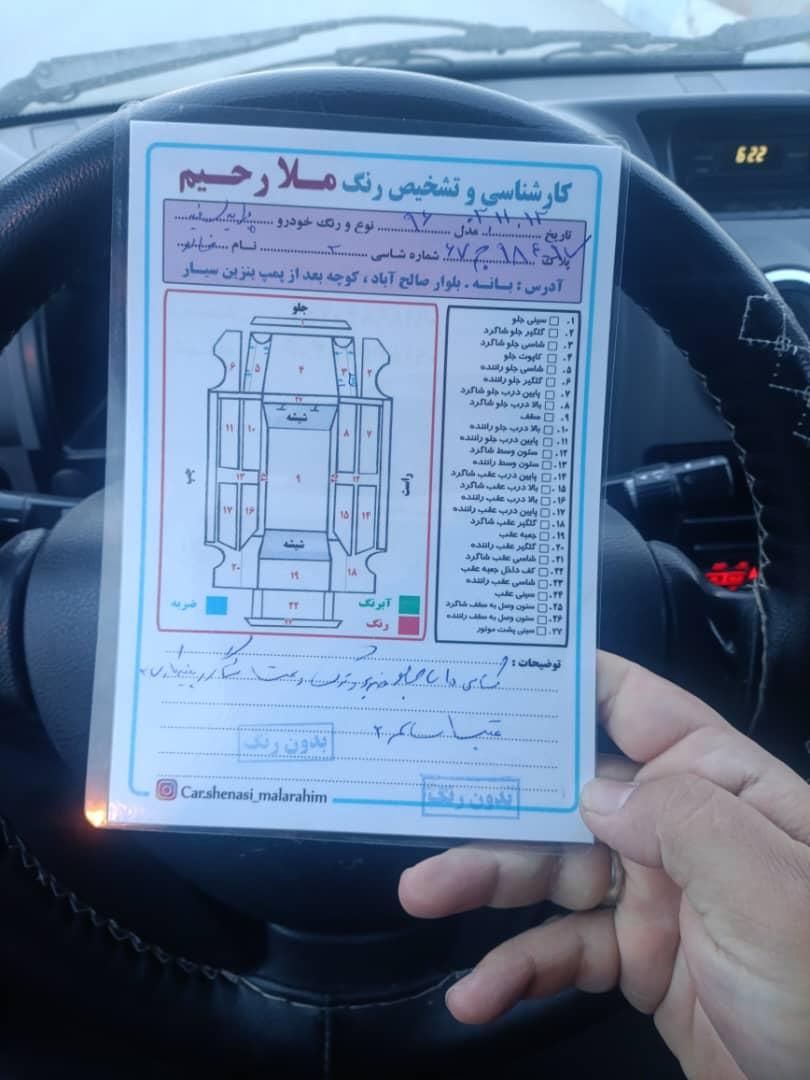 کارشناسی و تشخیص رنگ ملا رحیم
تاریخ ۰۳،۱۱،۱۳ مدل ۹۶ نوع و رنگ خودرو
پلاک ۹۸ ج ۶۷ شماره شاسی نام
آدرس : بـانـه ـ بلوار صالح آباد ، کوچه بعد از پمپ بنزین سیـار
جلو
راست
شیشه
شیشه
۱
۲
۳
۴
۵
۶
۷
۸
۹
۱۰
۱۱
۱۲
۱۳
۱۴
۱۵
۱۶
۱۷
۱۸
۱۹
۲۰
۲۷
آبرنگ
ضربه
رنگ
۱. سینی جلو
۲. گلگیر جلو شاگرد
۳. شاسی جلو شاگرد
۴. کاپوت جلو
۵. شاسی جلو راننده
۶. گلگیر جلو راننده
۷. پایین درب جلو شاگرد
۸. بالا درب جلو شاگرد
۹. سقف
۱۰. بالا درب جلو راننده
۱۱. پایین درب جلو راننده
۱۲. ستون وسط شاگرد
۱۳. ستون وسط راننده
۱۴. پایین درب عقب شاگرد
۱۵. بالا درب عقب شاگرد
۱۶. بالا درب عقب راننده
۱۷. پایین درب عقب راننده
۱۸. گلگیر عقب شاگرد
۱۹. جعبه عقب
۲۰. گلگیر عقب راننده
۲۱. شاسی عقب شاگرد
۲۲. کف داخل جعبه عقب
۲۳. شاسی عقب راننده
۲۴. سینی عقب
۲۵. ستون وصل به سقف شاگرد
۲۶. ستون وصل به سقف راننده
۲۷. سینی پشت موتور
توضیحات :
عقب سالم
بدون رنگ
بدون رنگ
Car.shenasi_malarahim
6:22